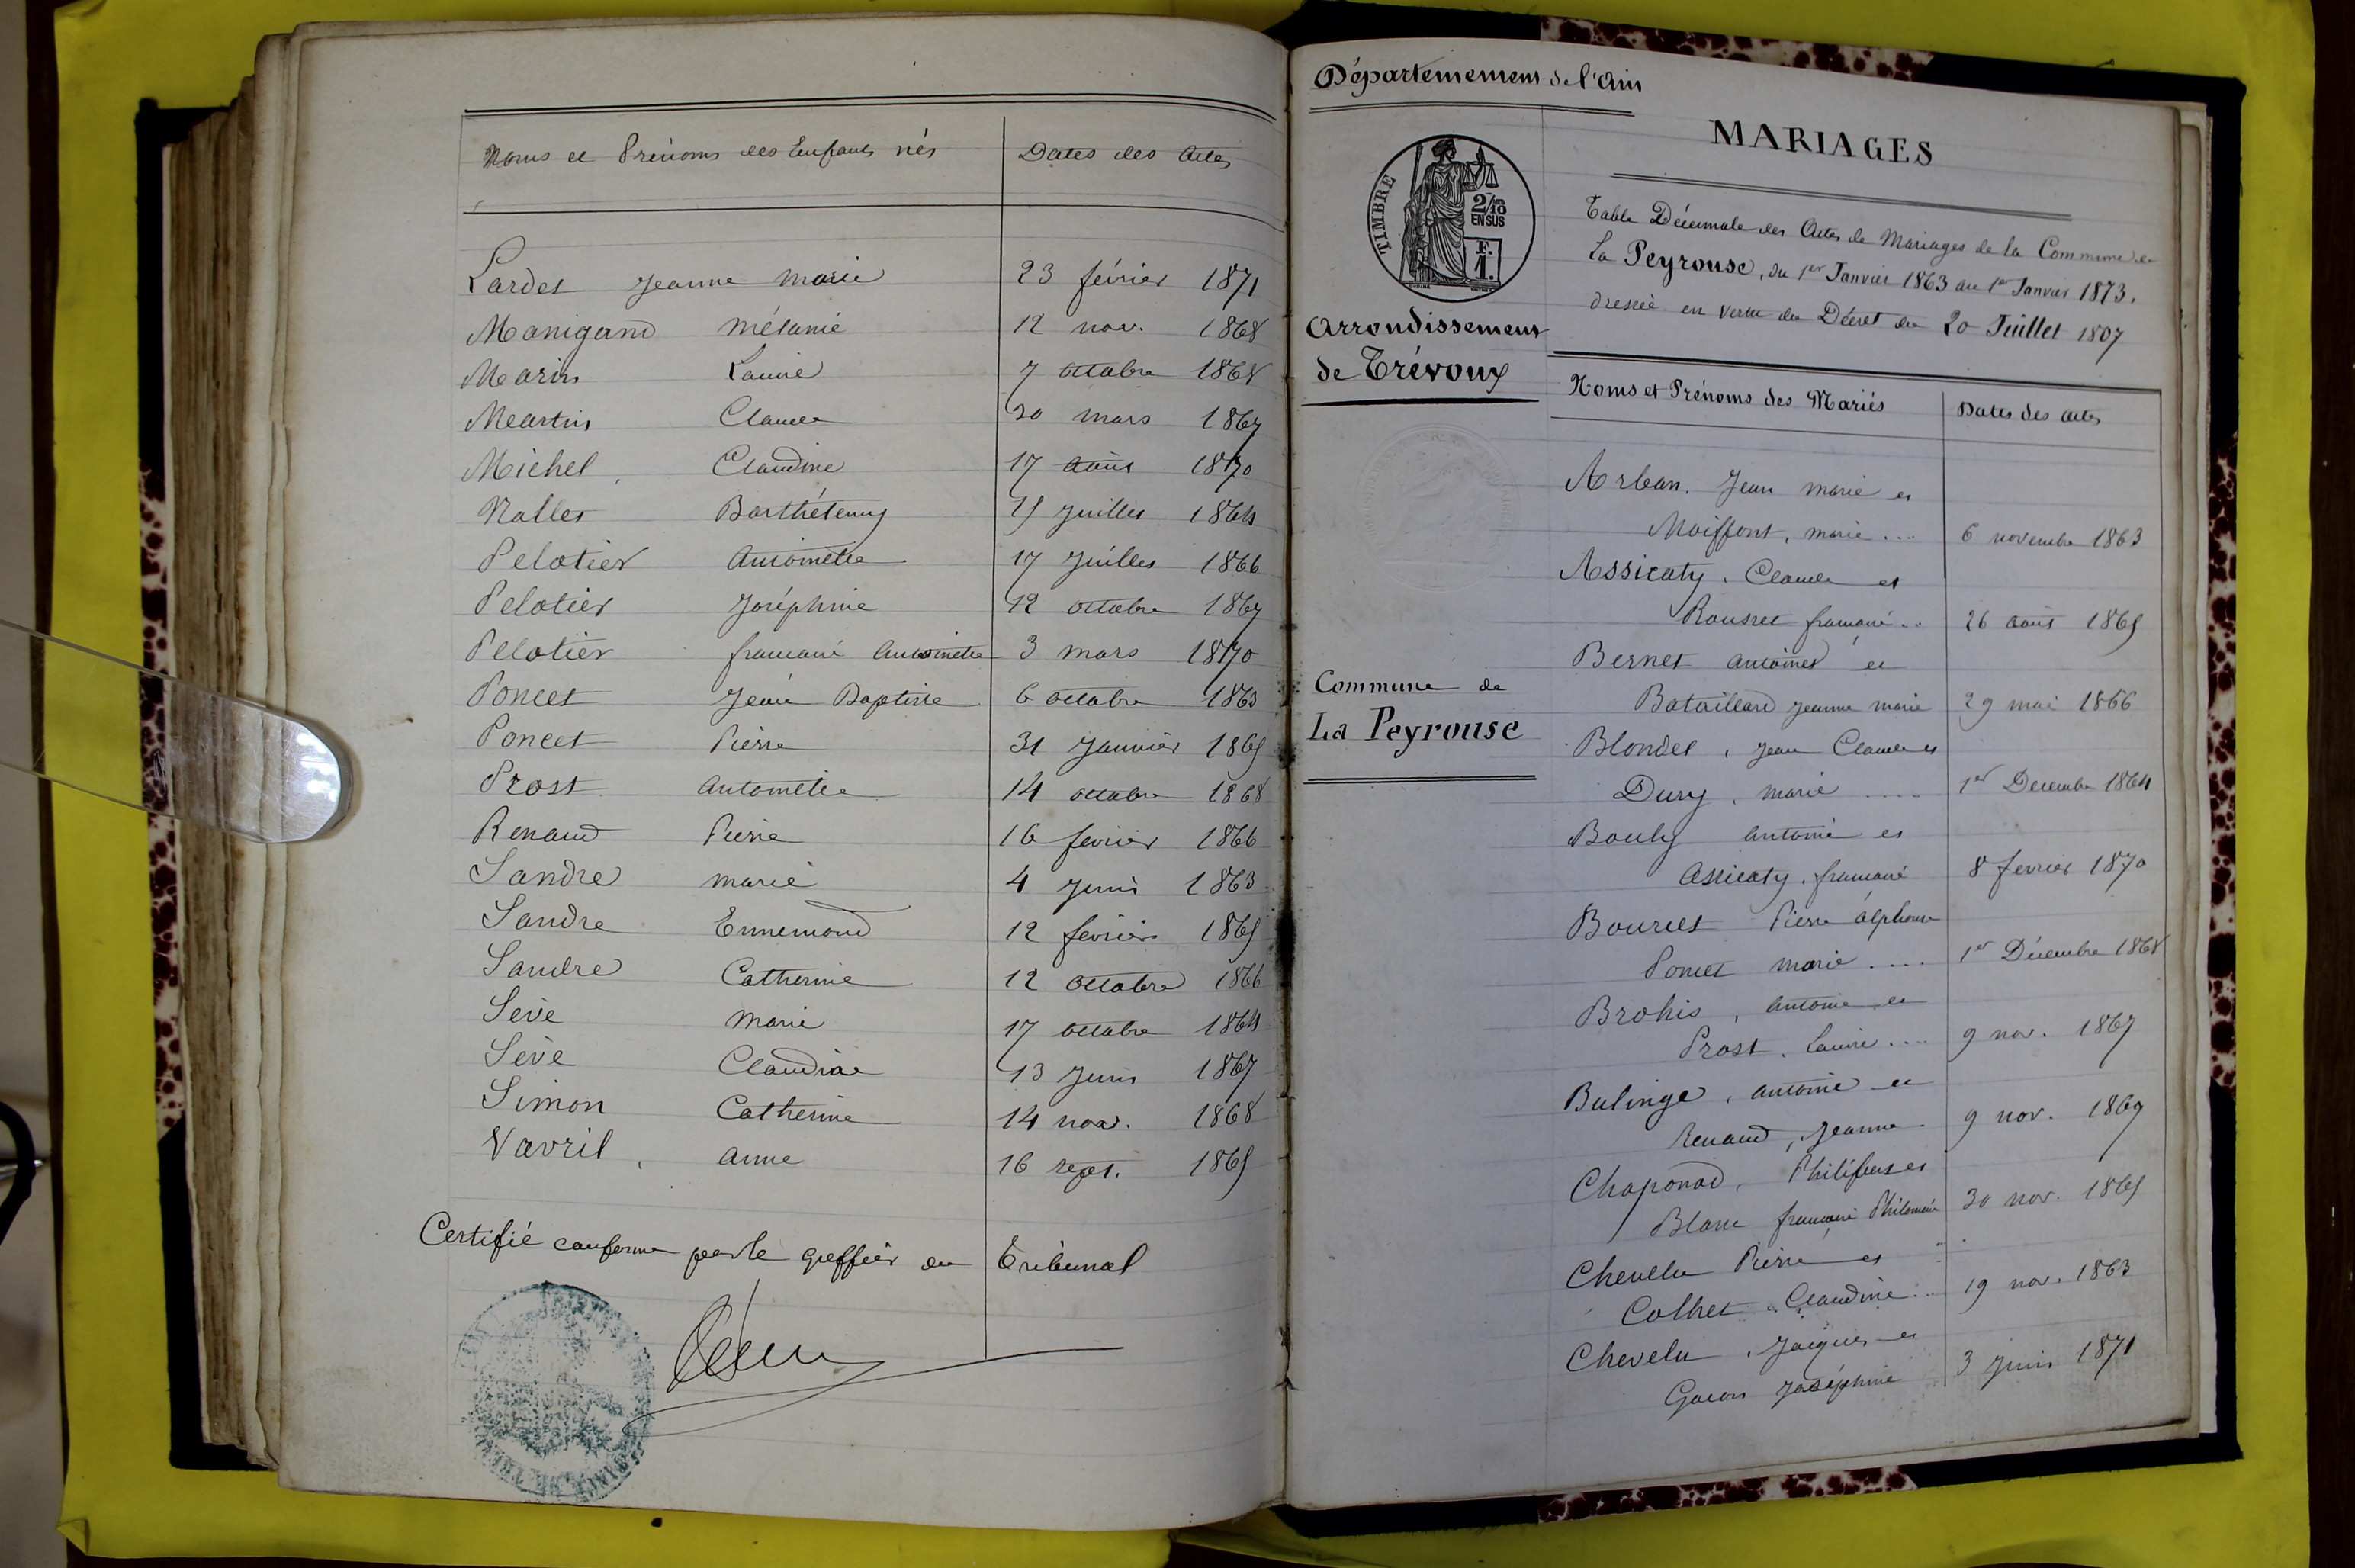 Noms et Prénoms des Enfants nés Dates des Actes
Lardet Jeanne Marie 23 février 1871
Manigand Mélanie 12 nov. 1868
Marin Louise 7 octobre 1868
Martin Claude 20 mars 1867
Michel, Claudine 17 août 1870
Nallet Barthélemy 25 juillet 1864
Pelotier Antoinette 17 juillet 1866
Pelotier Joséphine 12 octobre 1867
Pelotier françoise Antoinette 3 mars 1870
Poncet Jean Baptiste 6 octobre 1863
Poncet Pierre 31 Janvier 1865
Prost Antoinette 14 octobre 1868
Renaud Pierre 16 fevrier 1866
Sandre marie 4 Juin 1863
Sandre Ennemond 12 fevrier 1865
Sandre Catherine 12 octobre 1866
Sève Marie 17 octobre 1864
Sève Claudine 13 Juin 1867
Simon Catherine 14 nov. 1868
Vavril, Anne 16 sept. 1865
Certifié conforme par le greffier du Tribunal
Département de l'Ain
TIMBRE
2/10
EN SUS
F.
1.
Arrondissement
de Trévoux
Commune de
La Peyrouse
MARIAGES
Table Décennale des Actes de Mariages de la Commune de
La Peyrouse, du 1er Janvier 1863 au 1er Janvier 1873,
dressée en vertu du Décret du 20 Juillet 1807
Noms et Prénoms des Mariés Dates des actes
Arban. Jean marie et
Moiffont, marie .... 6 novembre 1863
Assicaty. Claude et
Rousset françoise .. 26 août 1865
Bernet Antoine et
Bataillard Jeanne marie 29 mai 1866
Blondel, Jean Claude et
Dury, marie .... 1er Decembre 1864
Bouly Antoine et
Assicaty. françoise 8 fevrier 1870
Bourcet Pierre Alphonse
Poncet marie .... 1er Décembre 1868
Brohis, Antoine et
Prost. Louise .... 9 nov. 1867
Bulinge, Antoine et
Renaud, Jeanne 9 nov. 1869
Chaponod, Philibert et
Blanc françoise Philomène 30 nov. 1865
Chevelu Pierre et
Colhet Claudine .. 19 nov. 1863
Chevelu, Jacques et
Gacon Joséphine 3 Juin 1871